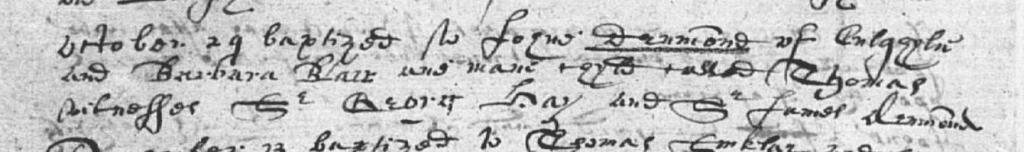 october 29 baptized to Johne Drummond of
and Barbara Blair ane man chyld called Thomas
witnesses Sr George Hay and Sr James drumond
baptized to Thomas